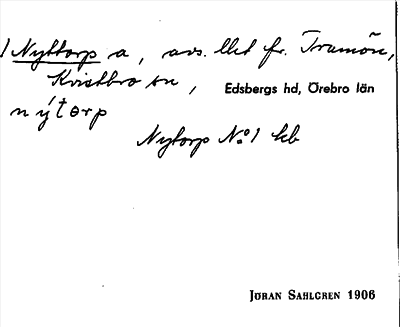 1 Nyttorp a, avs. lht fr. Tramön,
Kvistbro sn, Edsbergs hd, Örebro län
nýtorp
Nytorp No 1 kb
JÖRAN SAHLGREN 1906